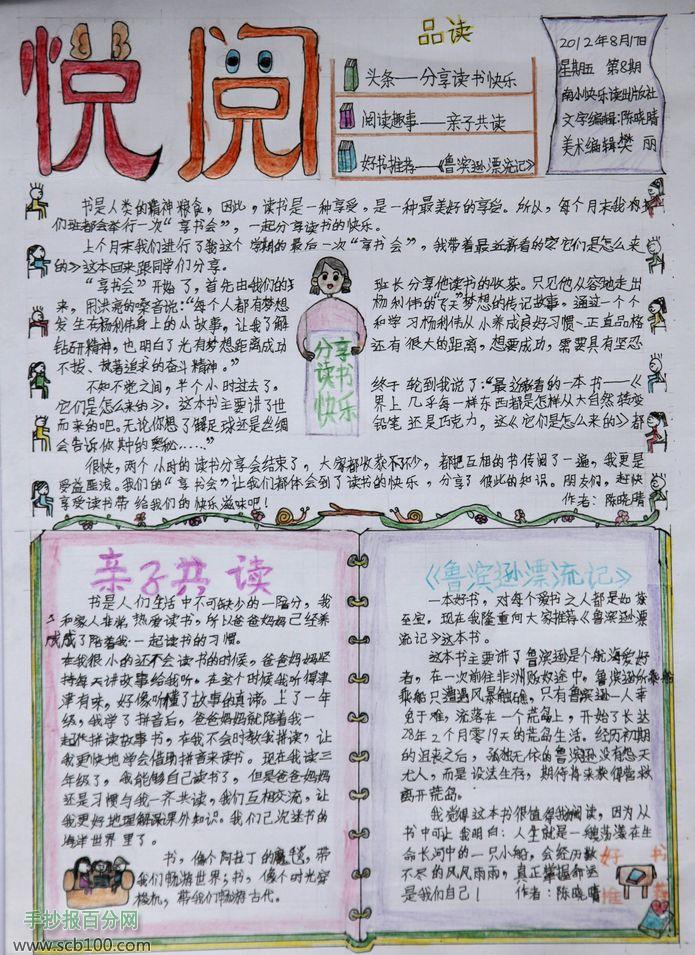 悦阅
品读
头条——分享读书快乐
阅读趣事——亲子共读
好书推荐——《鲁滨逊漂流记》
2012年8月17日
星期五 第8期
南小快乐读出版社
文字编辑:陈晓晴
美术编辑樊 丽
书是人类的精神粮食，因此，读书是一种享受，是一种最美好的享受。所以，每个月末我
们班都会举行一次“享书会”，一起分享读书的快乐。
上个月末我们进行了我这个学期的最后一次“享书会”，我带着最近新看的
的》这本回来跟同学们分享。
“享书会”开始了，首先由我们的
班长分享他读书的收获。只见他从容地走出
来，用洪亮的嗓音说：“每个人都有梦想
杨利伟的“飞天”梦想的传记故事，通过一个个
发生在杨利伟身上的小故事，让我了解
和学习杨利伟从小养成良好习惯、正直品格
钻研精神，也明白了光有梦想距离成功
还有很大的距离，想要成功，需要具有坚忍
不拔、执着追求的奋斗精神。”
不知不觉之间，半个小时过去了。
终于轮到我说了：“最近新看的一本书——《
它们是怎么来的》。这本书主要讲了世
界上几乎每一样东西都是怎样从大自然转变
而来的吧。无论你想了解足球还是丝绸
铅笔还是巧克力，这《它们是怎么来的》都
会告诉你其中的奥秘……”
分享
读书
快乐
很快，两个小时的读书分享会结束了，大家都收获不少，都把互相的书传阅了一遍，我更是
受益匪浅。我们的“享书会”让我们都体会到了读书的快乐，分享了彼此的知识。朋友们，赶快
享受读书带给我们的快乐滋味吧！
作者：陈晓晴
亲子共读
书是人们生活中不可缺少的一部分，我
和家人非常热爱读书，所以爸爸妈妈已经养
成了陪着我一起读书的习惯。
在我很小的还不会读书的时候，爸爸妈妈坚
持每天讲故事给我听。在这个时候我听得津
津有味，好像听懂了故事的真谛。上了一年
级，我学了拼音后，爸爸妈妈就陪着我一
起拼读故事书，在我不会时教我拼读，让
我更快地学会借助拼音来读书。现在我读三
年级了，我能够自己读书了，但是爸爸妈妈
还是习惯与我一齐共读，我们互相交流，让
我更好地理解课外知识。我们已沉迷书的
海洋世界里了。
书，像个阿拉丁的魔毯，带
我们畅游世界；书，像个时光穿
梭机，带我们畅游古代。
《鲁滨逊漂流记》
一本好书，对每个爱书之人都是如获
至宝。现在我隆重向大家推荐《鲁滨逊漂
流记》这本书。
这本书主要讲了鲁滨逊是个航海爱好
者，在一次前往非洲贩奴途中，鲁滨逊所乘
船只遭遇风暴触礁，只有鲁滨逊一人幸
免于难，流落在一个荒岛上，开始了长达
28年2个月零19天的荒岛生活。经历初期
的沮丧之后，孤独无依的鲁滨逊没有怨天
尤人，而是设法生存，期待将来获得营救
离开荒岛。
我觉得这本书很值得我阅读，因为从
书中可让我明白：人生就是一艘荡漾在生
命长河中的一只小船，会经历数
不尽的风风雨雨，真正掌握命运
是我们自己！ 作者：陈晓晴
好书
推荐
手抄报百分网
www.scb100.com